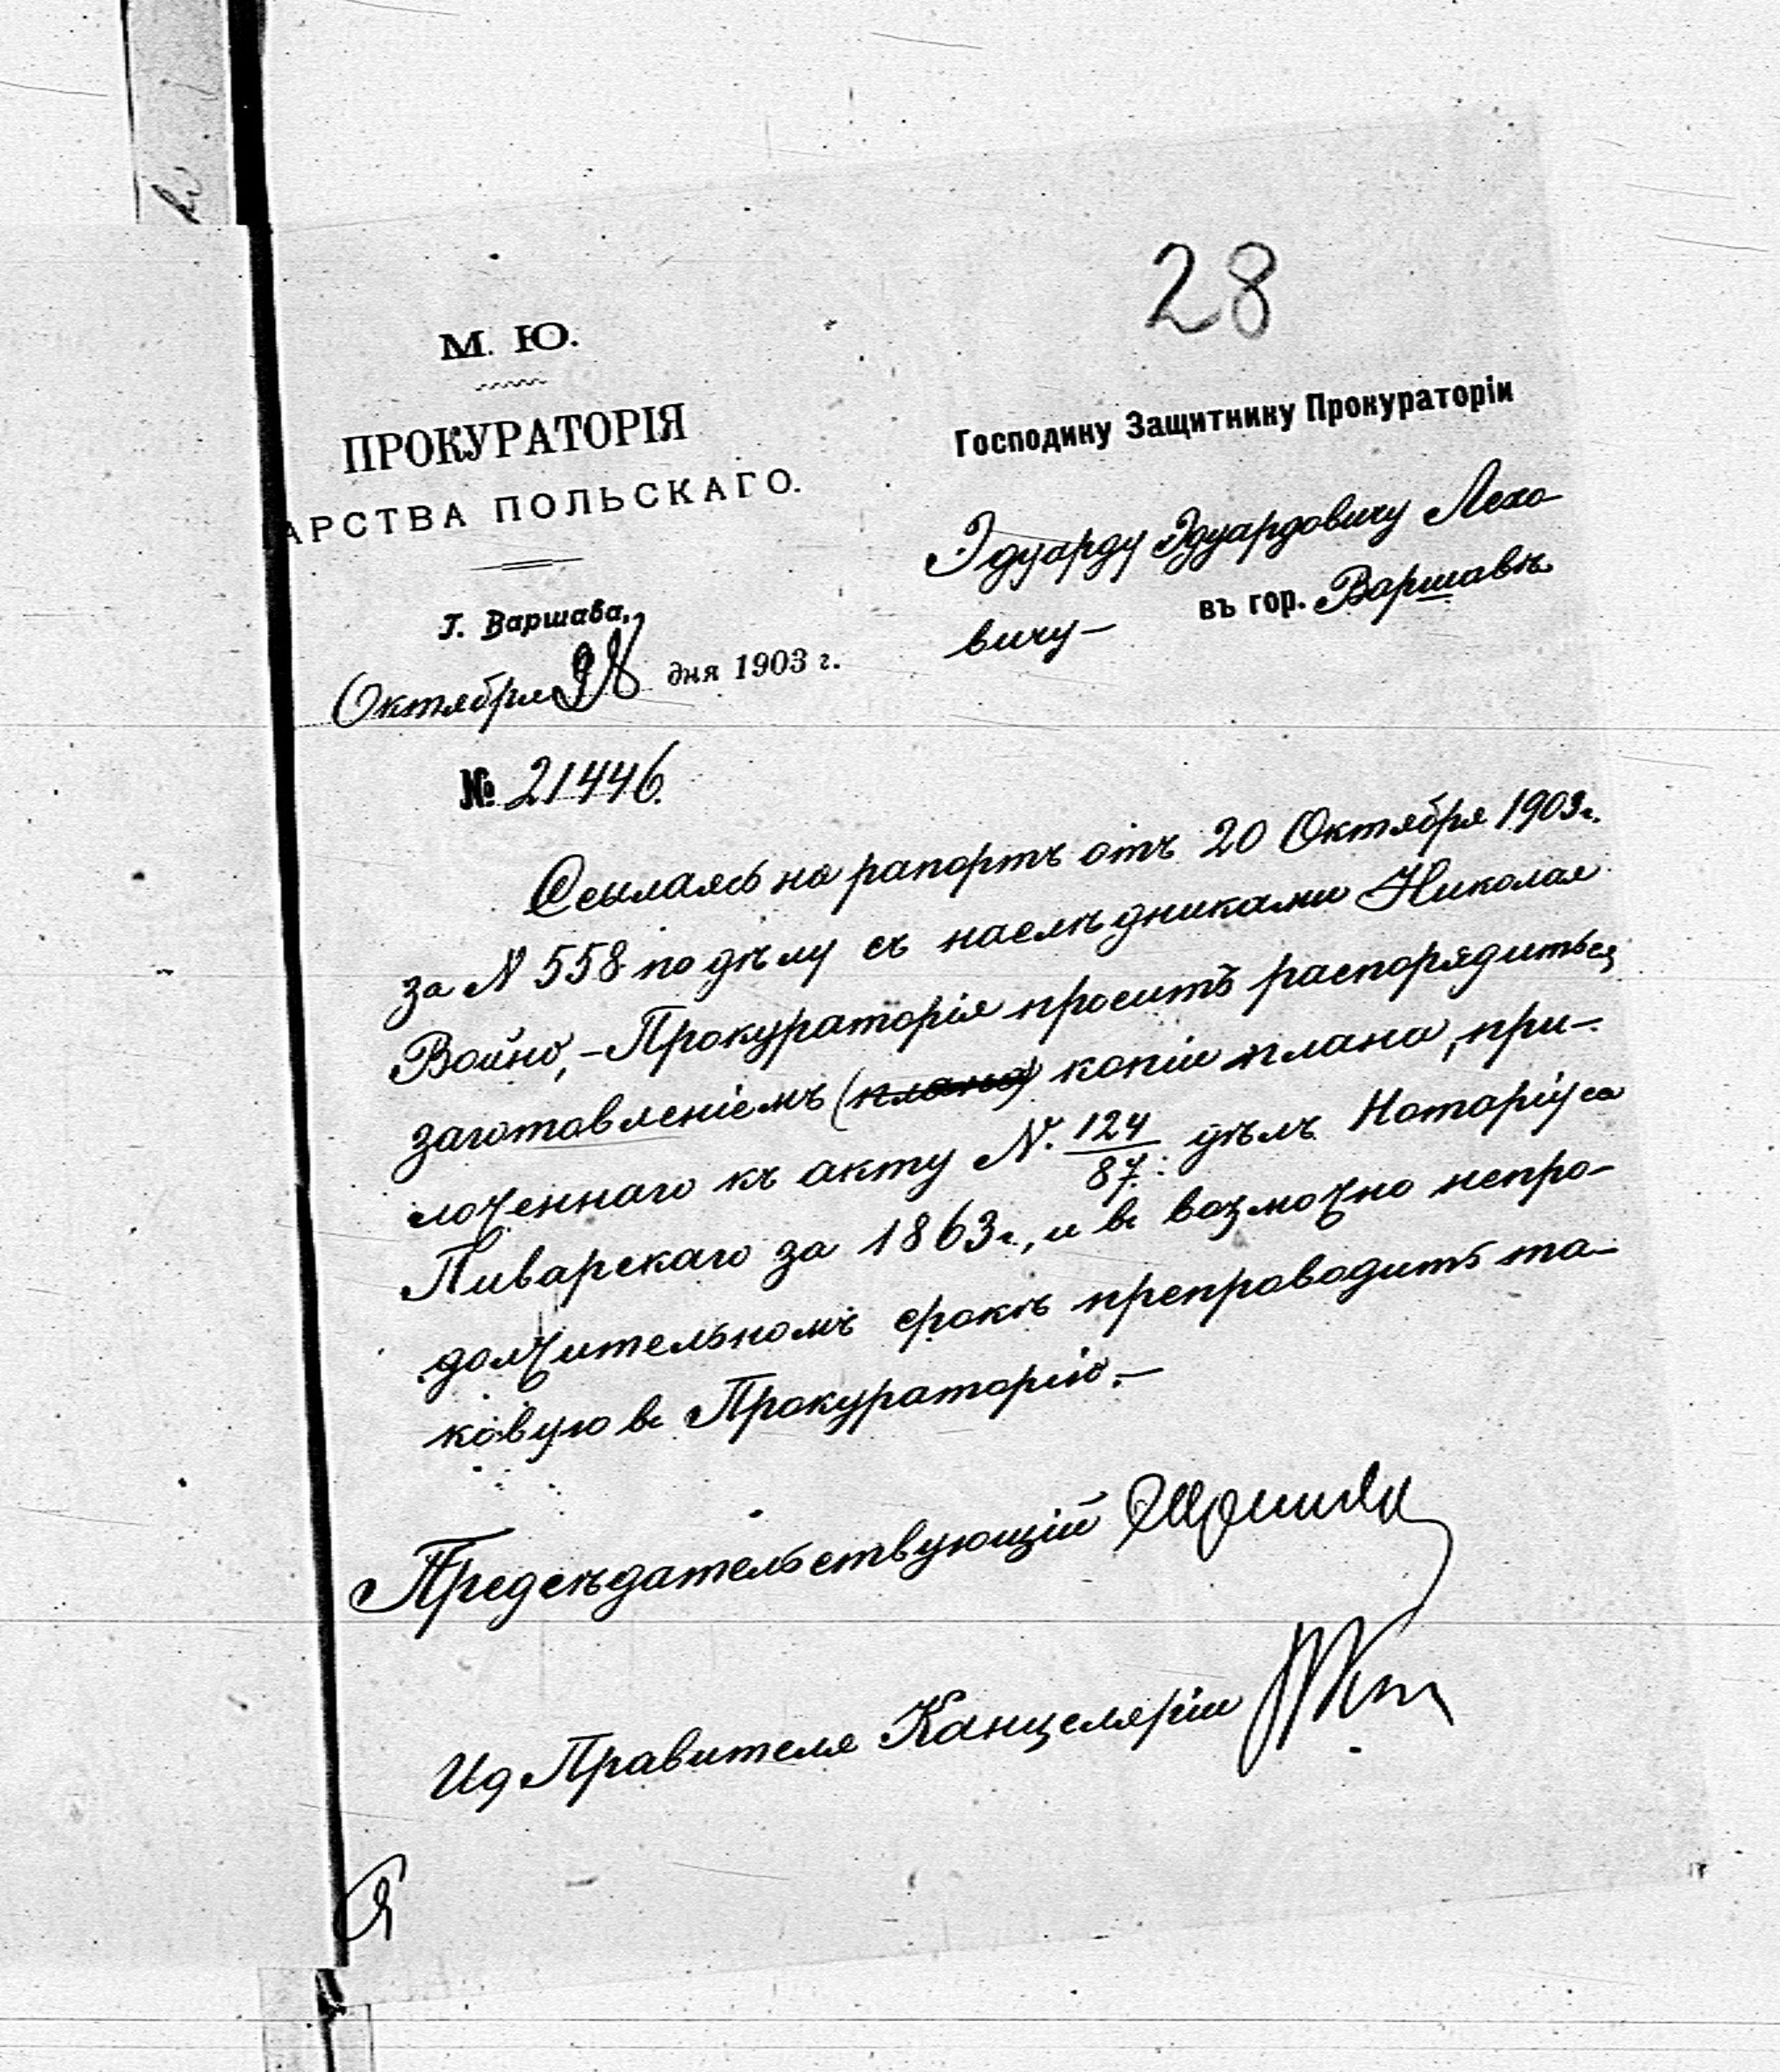 28
М. Ю.
ПРОКУРАТОРІЯ
АРСТВА ПОЛЬСКАГО.
Г. Варшава,
Октября 28 дня 1903 г.
№ 21446.
Господину Защитнику Прокураторіи
Эдуарду Эдуардовичу Лехо-
вичу —
въ гор. Варшавѣ
Ссылаясь на рапортъ отъ 20 Октября 1903 г.
за N 558 по дѣлу съ наслѣдниками Николая
Войно, - Прокураторія проситъ распорядиться
заготовленіемъ (плана) копіи плана, при-
ложеннаго къ акту N. 124/87 дѣлъ Нотаріуса
Пиварскаго за 1863 г., и въ возможно непро-
должительномъ срокѣ препроводить та-
ковую въ Прокураторію. —
Предсѣдательствующій
Ид Правителя Канцеляріи